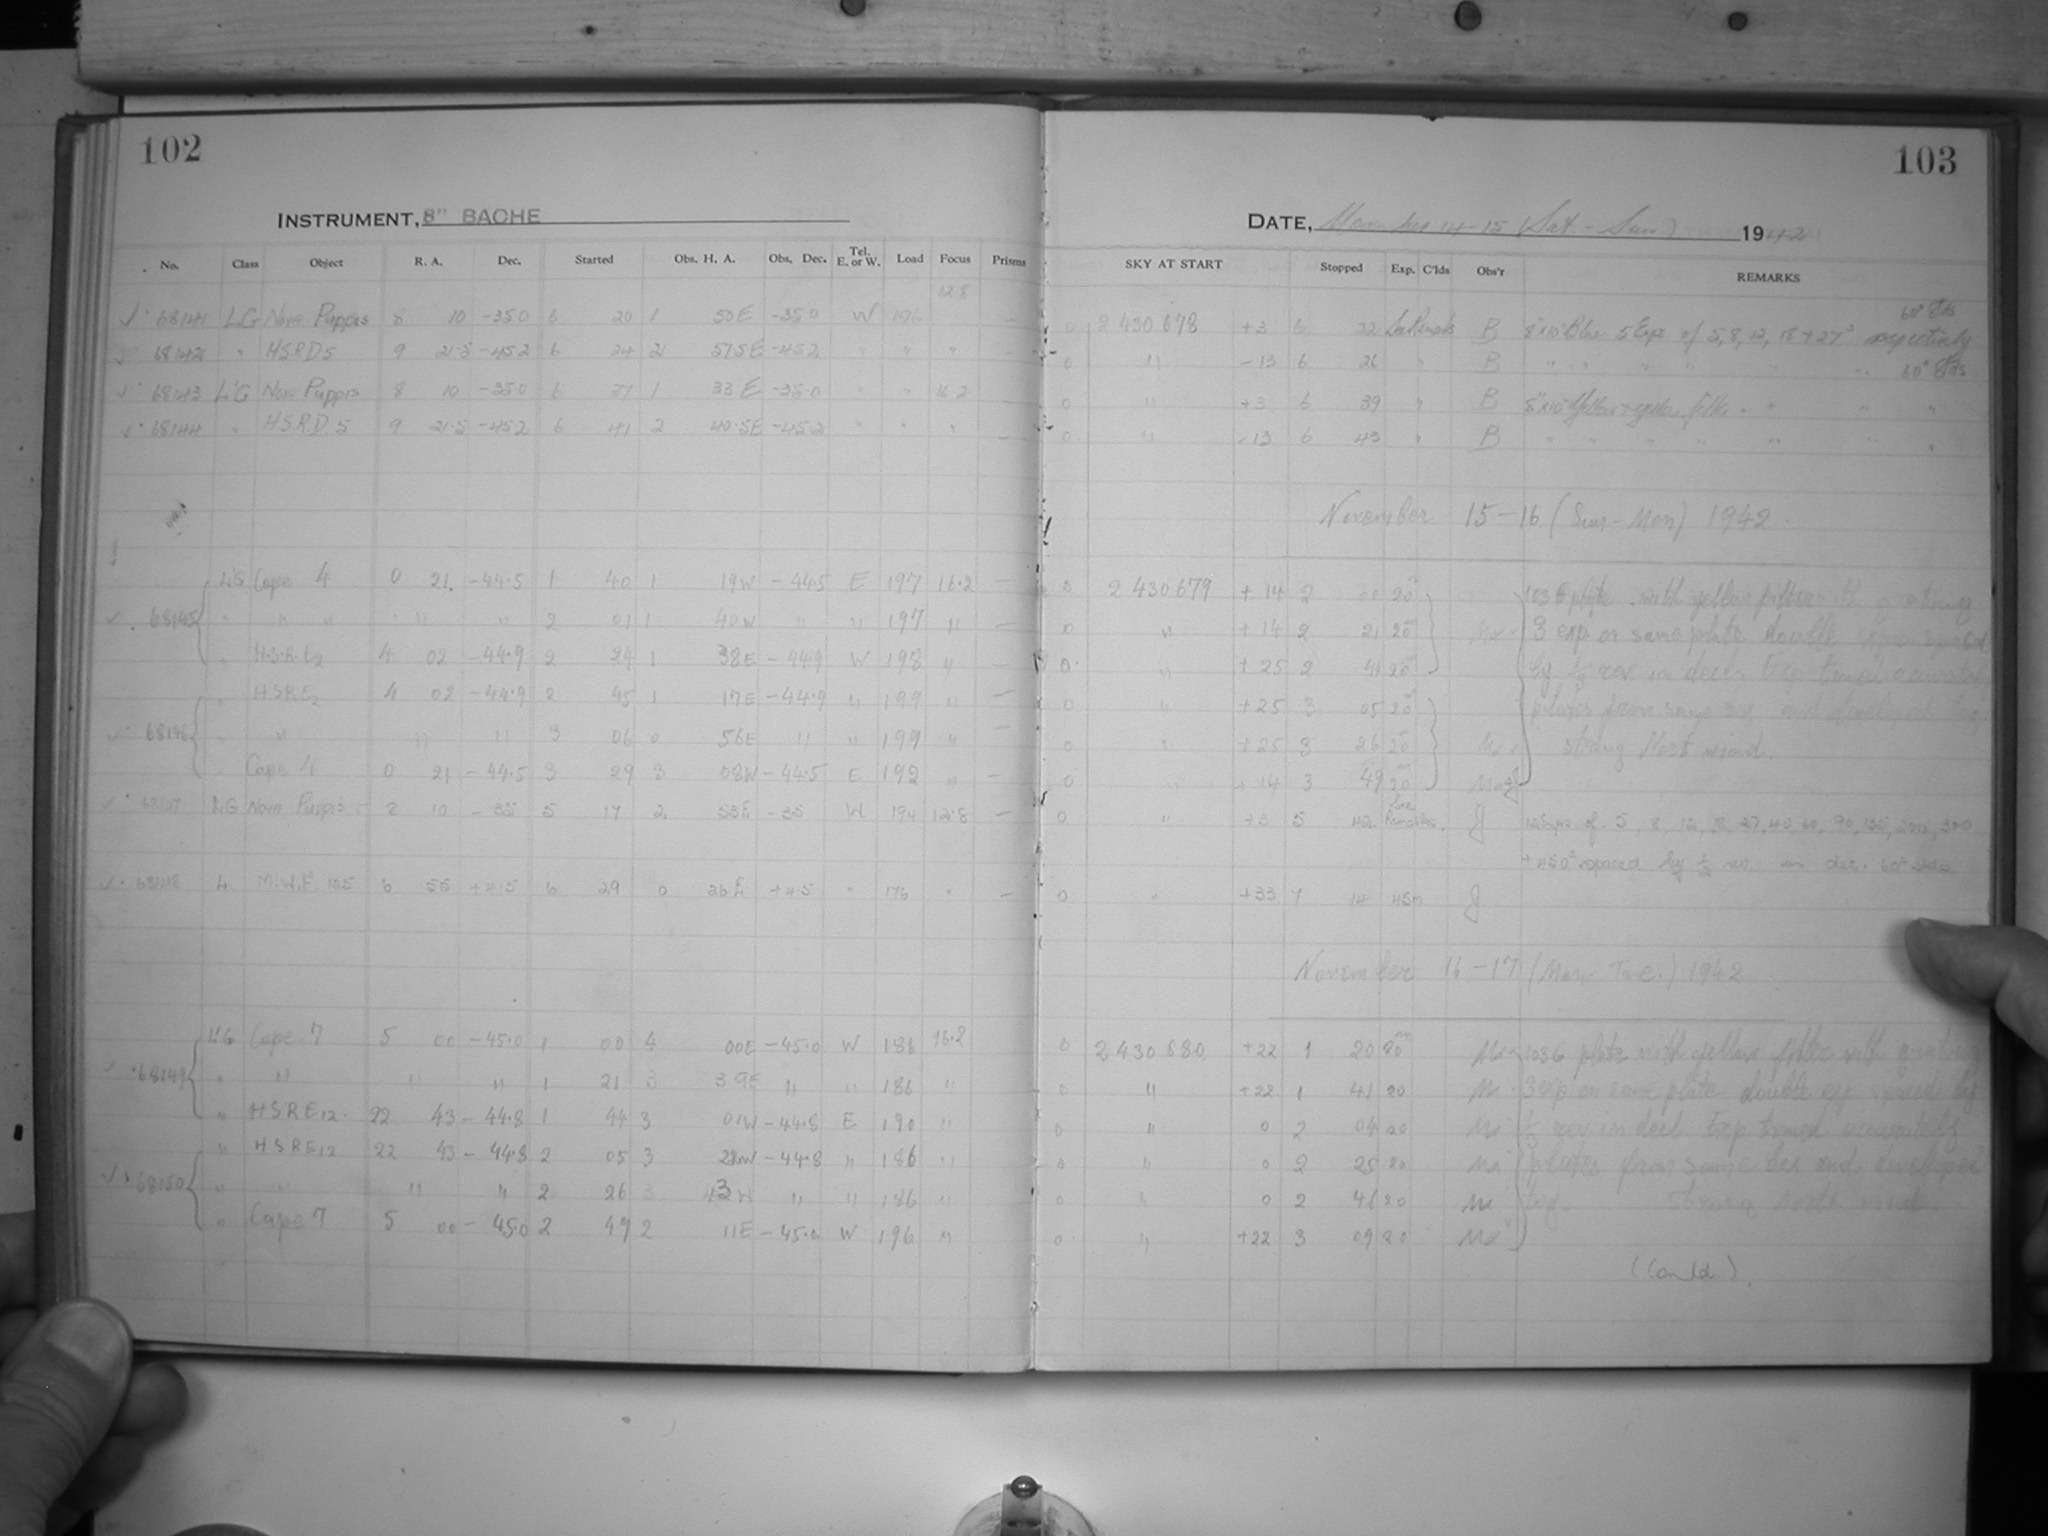 102
INSTRUMENT, 8" BACHE
No. Class Object R. A. Dec. Started Obs. H. A. Obs. Dec. Tel. E. or W. Load Focus Prisms
12.8
68141 LG Nova Puppis 8 10 -35.0 6 20 1 50E -35.0 W 196
68142 " HSRD5 9 21.5 -45.2 6 24 2 57.5E -45.2 " " "
68143 L'G Nova Puppis 8 10 -35.0 6 37 1 33E -35.0 " " 16.2
68144 " H.S.R.D. 5 9 21.5 -45.2 6 41 2 40.5E -45.2 " " "
L'G Cape 4 0 21. -44.5 1 40 1 19W -44.5 E 197 16.2 —
68145 " " " " " 2 01 1 40W " " 197 "
" H.S.R.E2 4 02 -44.9 2 24 1 38E -44.9 W 198 " —
" HSRE2 4 02 -44.9 2 45 1 17E -44.9 " 199 " —
68146 " " " " 3 06 0 56E " " 199 " —
Cape 4 0 21 -44.5 3 29 3 08W -44.5 E 192 " —
LG Nova Puppis 8 10 -35 5 17 2 53E -35 W 194 12.8 —
68148 L M.W.F. 125 6 55 +4.5 6 29 0 26E +4.5 " 176 " —
L'G Cape 7 5 00 -45.0 1 00 4 00E -45.0 W 186 16.2
68149 " " " " 1 21 3 39E " " 186 "
" HSRE12 22 43 -44.8 1 44 3 01W -44.8 E 190 "
" HSRE12 22 43 -44.8 2 05 3 22W -44.8 " 186 "
68150 " " " " 2 26 3 43W " " 186 "
" Cape 7 5 00 -45.0 2 49 2 11E -45.0 W 196 "
103
DATE, November 14-15 (Sat.-Sun) 1942
SKY AT START Stopped Exp. C'lds Obs'r REMARKS
0 2 430 678 +3 6 22 See Remarks B 8"x10" Blue 5 Exps of 5, 8, 12, 18 + 27s respectively 60°
0 " -13 6 26 " B " " " " " " 60°
0 " +3 6 39 " B 8"x10" Yellow + yellow filter " " "
0 " -13 6 43 " B " " " " " " "
November 15-16 (Sun-Mon) 1942
0 2 430 679 +14 2 20 plate with yellow filter grating
0 " +14 2 21 20 3 exp. on same plate double exp. spaced
0 " +25 2 20 by rev. in decl. Exp. timed
0 " +25 3 05 20 plates from same box and developed tog.
0 " +25 3 26 20 strong North wind.
0 " +14 3 49 20
0 " +3 5 42 See Remarks J 12 exps of 5, 8, 12, 18, 27, 40, 60, 90, 135, 200, 300
+ 450s spaced by rev. in dec. 60°
0 " +33 7 14 45m J
November 16-17 (Mon. Tue.) 1942
0 2 430 680 +22 1 20 20 103G plate with yellow filter with grating
0 " +22 1 41 20 3 exp on same plate double exp spaced by
0 " 0 2 04 20 rev in decl Exp timed accurately
0 " 0 2 25 20 plates from same box and developed
0 " 0 2 46 20 tog. strong North wind.
0 " +22 3 09 20
(Contd).